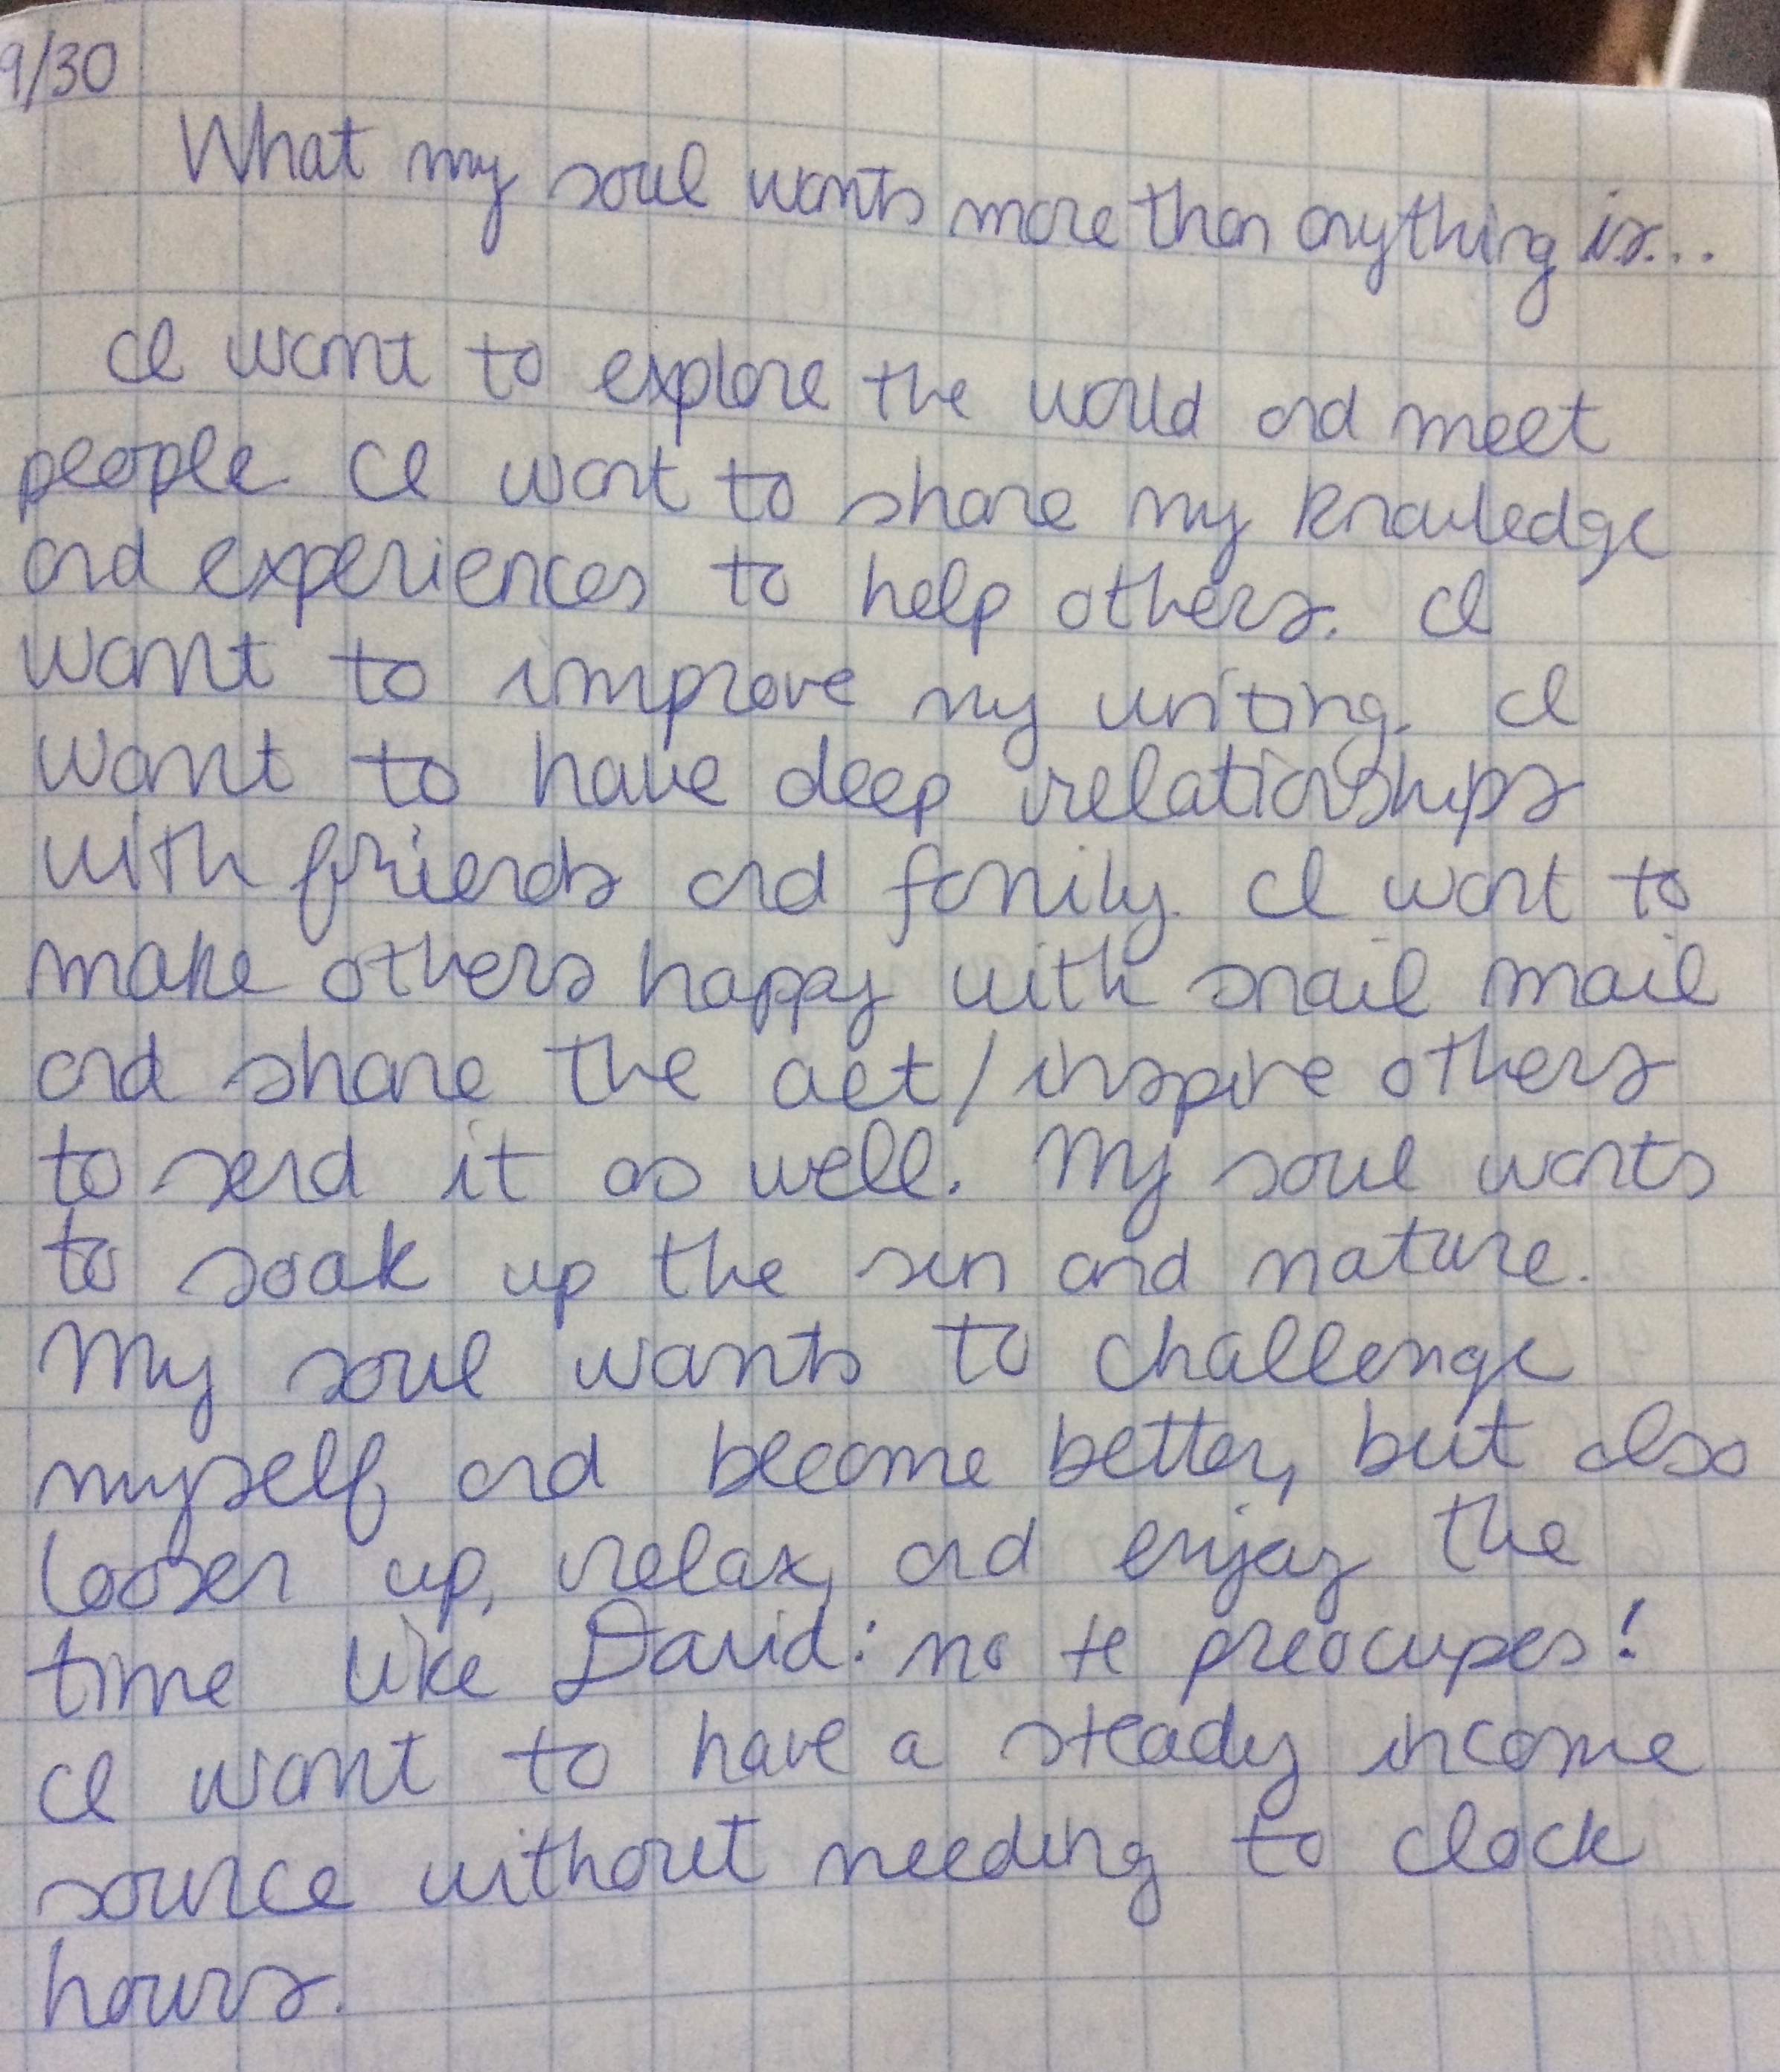 9/30
What my soul wants more than anything is...
I want to explore the world and meet
people. I want to share my knowledge
and experiences to help others. I
want to improve my writing. I
want to have deep relationships
with friends and family. I want to
make others happy with snail mail
and share the act/inspire others
to send it as well. My soul wants
to soak up the sun and nature.
My soul wants to challenge
myself and become better, but also
loosen up, relax, and enjoy the
time like David: no te preocupes!
I want to have a steady income
source without needing to clock
hours.